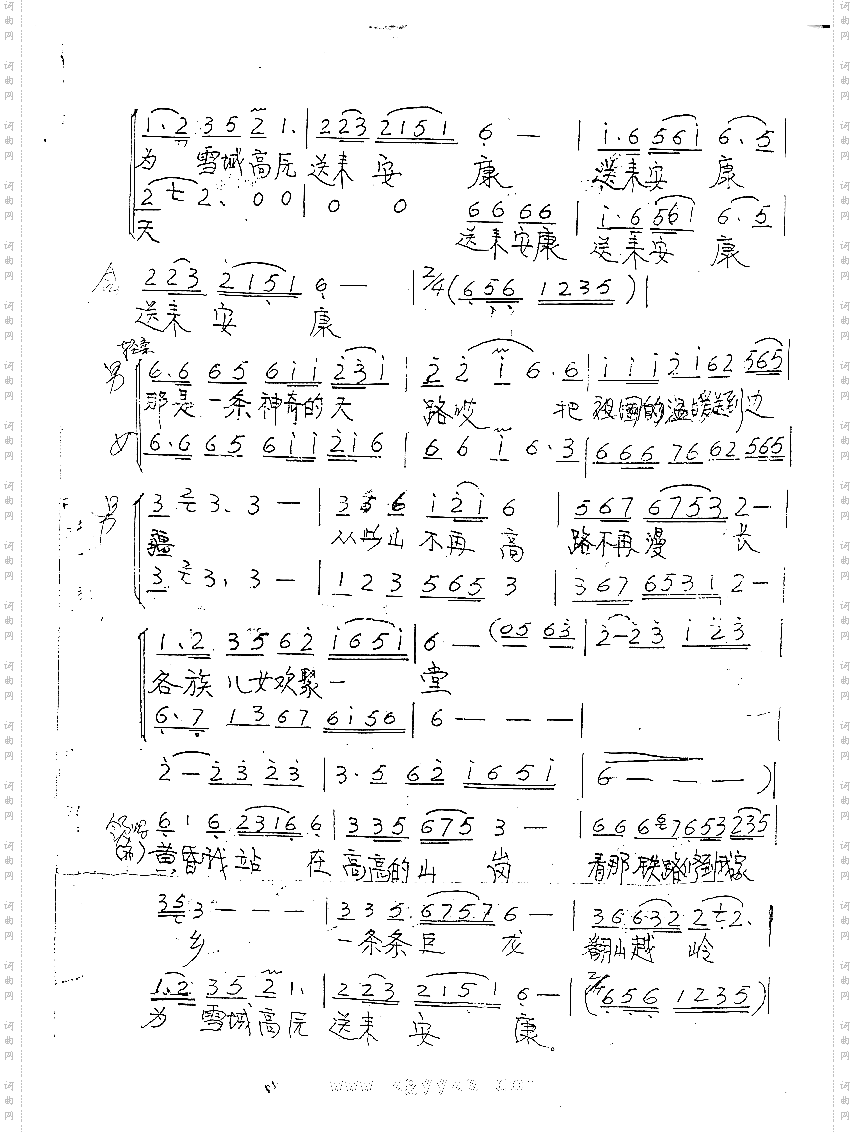 1.2 35 2 1. | 223 2151 6 — | i.6 56i 6.5 |
为 雪域高原 送来 安 康 送来安 康
2 七 2. 0 0 | 0 0 66 66 | i.6 561 6.5 |
天 送来安康 送来安 康
合 223 2151 6 — | 2/4 ( 656 1235 ) |
送来 安 康
男 6.6 65 6ii 23i | 2 2 i 6.6 | iii2i62 565 |
那是一条神奇的天 路哎 把祖國的温暖送到边
女 6.6 65 6ii 2i6 | 6 6 i 6.3 | 666 76 62 565 |
男 3 3. 3 — | 3 5 6 i2i 6 | 567 6753 2 — |
疆 从此山 不再 高 路不再漫 长
3 3. 3 — | 1 2 3 565 3 | 367 6531 2 — |
1.2 3562 i65i | 6 — (05 63 | 2 — 23 i 23 |
各族 儿女欢聚一 堂
6.7 1367 6i56 | 6 — — — |
2 — 23 23 | 3.5 62 i65i | 6 — — — ) |
616 2316 6 | 335 675 3 — | 666 7653 235 |
黄昏我站 在 高高的山 岗 看那铁路修到我家
35 3 — — — | 335 6757 6 — | 36632 2七2. |
乡 一条条巨 龙 翻山越 岭
1.2 35 2 1. | 223 2151 6 — | ( 2/4 656 1235 ) |
为 雪域高原 送来 安 康。
词曲网